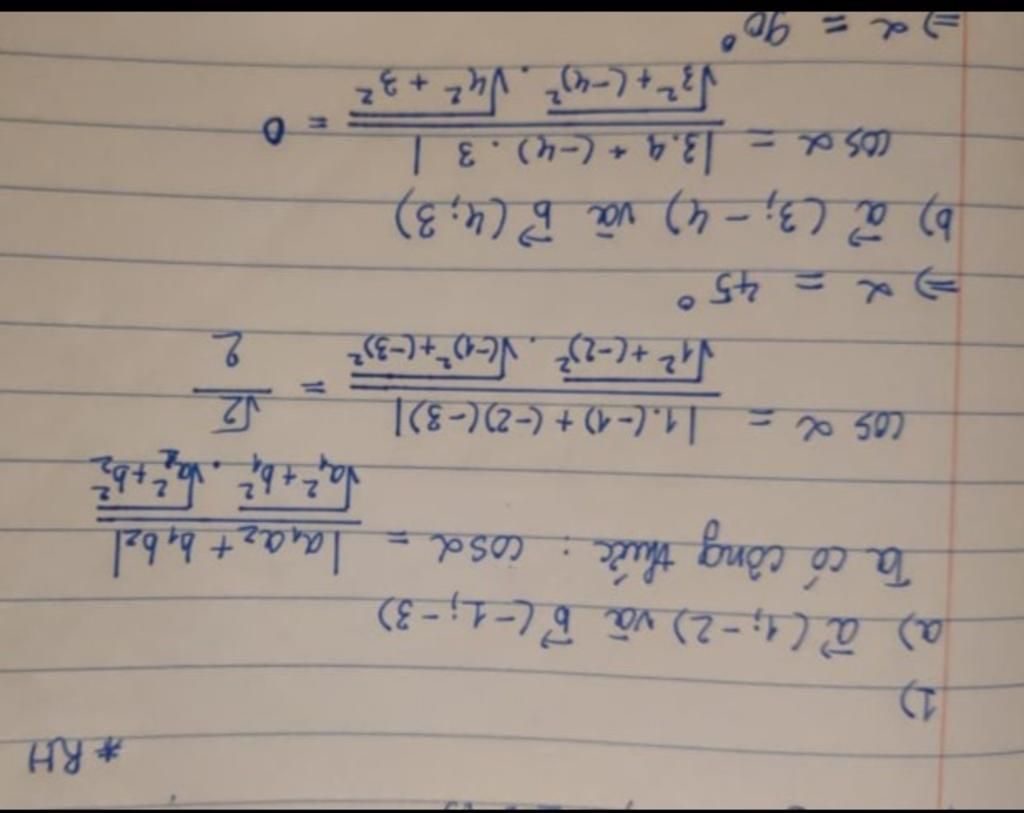 * RH
1)
a) a⃗ (1; -2) và b⃗ (-1; -3)
Ta có công thức : cosα = |a₁a₂ + b₁b₂| / √a₁² + b₁² . √a₂² + b₂²
cos α = |1.(-1) + (-2)(-3)| / √1² + (-2)² . √(-1)² + (-3)² = √2 / 2
=> α = 45°
b) a⃗ (3; -4) và b⃗ (4; 3)
cos α = |3.4 + (-4) . 3| / √3² + (-4)² . √4² + 3² = 0
=> α = 90°